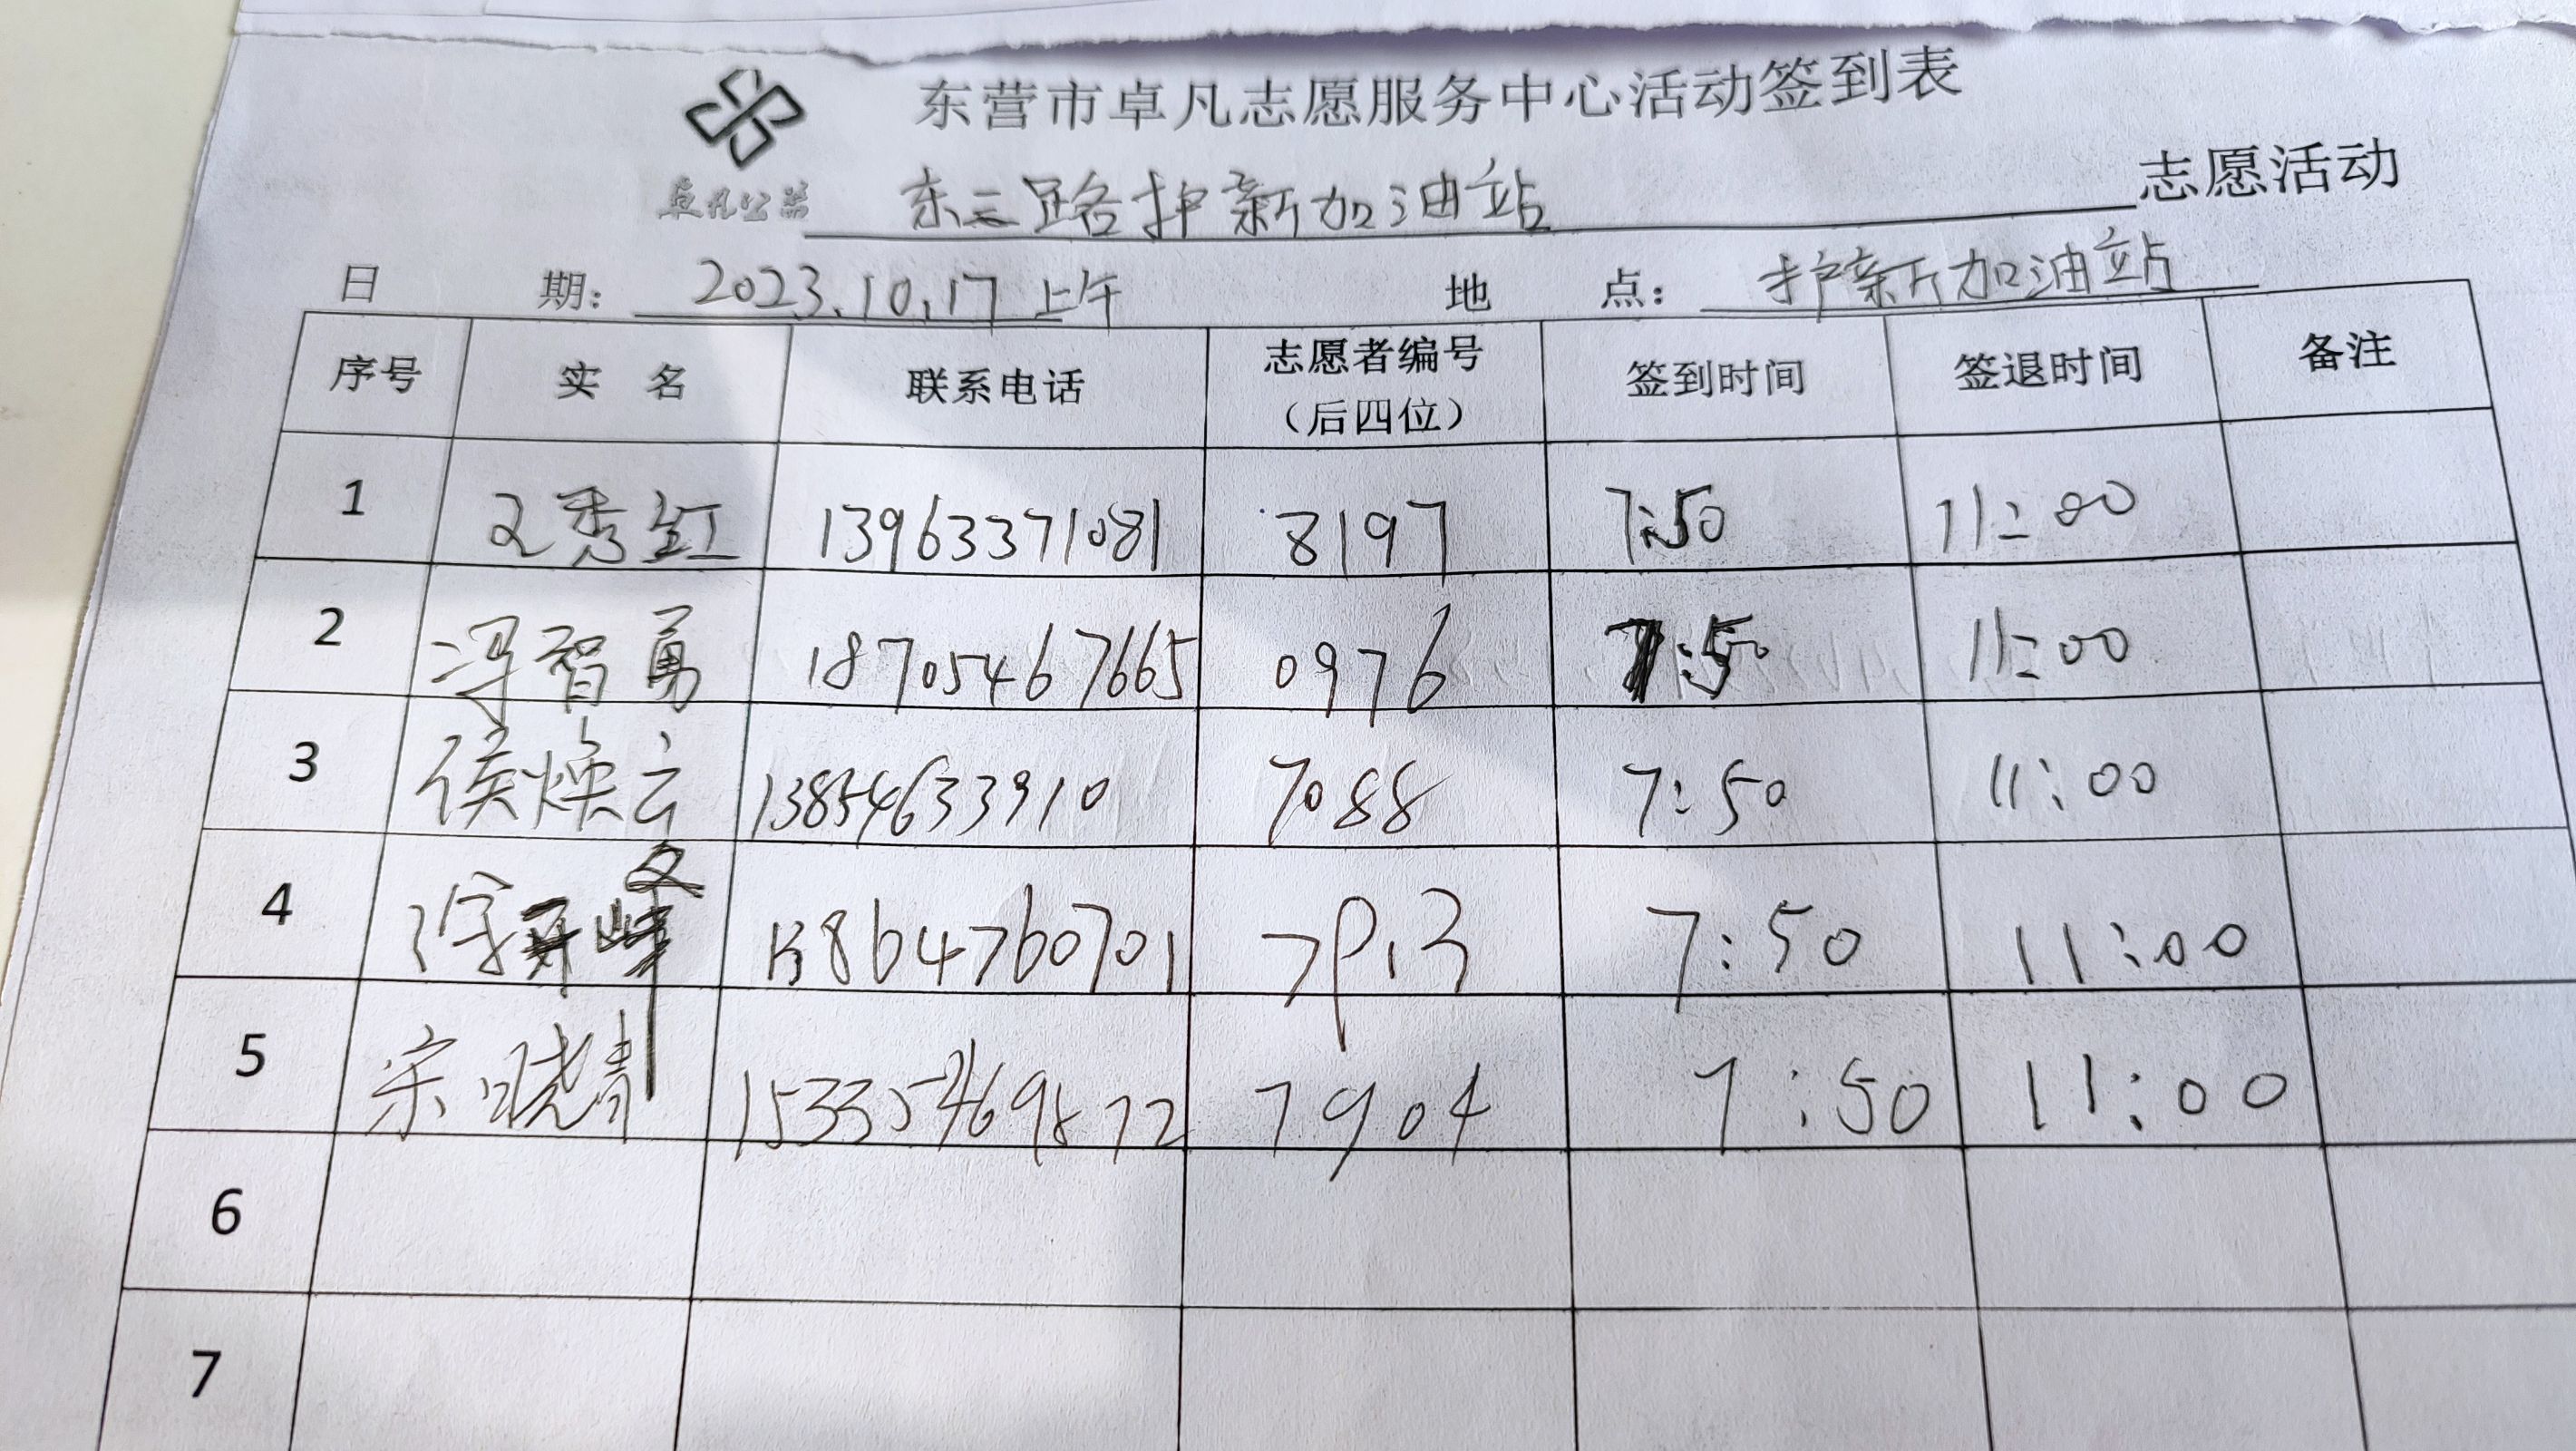 东营市卓凡志愿服务中心活动签到表
卓凡公益
东三路护新加油站 志愿活动
日 期： 2023.10.17上午 地 点： 护新加油站
序号 实 名 联系电话 志愿者编号（后四位） 签到时间 签退时间 备注
1 秀红 13963371081 8197 7:50 11:00
2 冯智勇 18705467665 0976 7:50 11:00
3 侯焕云 13854633910 7088 7:50 11:00
4 7:50 11:00
5 宋晓青 15335469872 7904 7:50 11:00
6
7